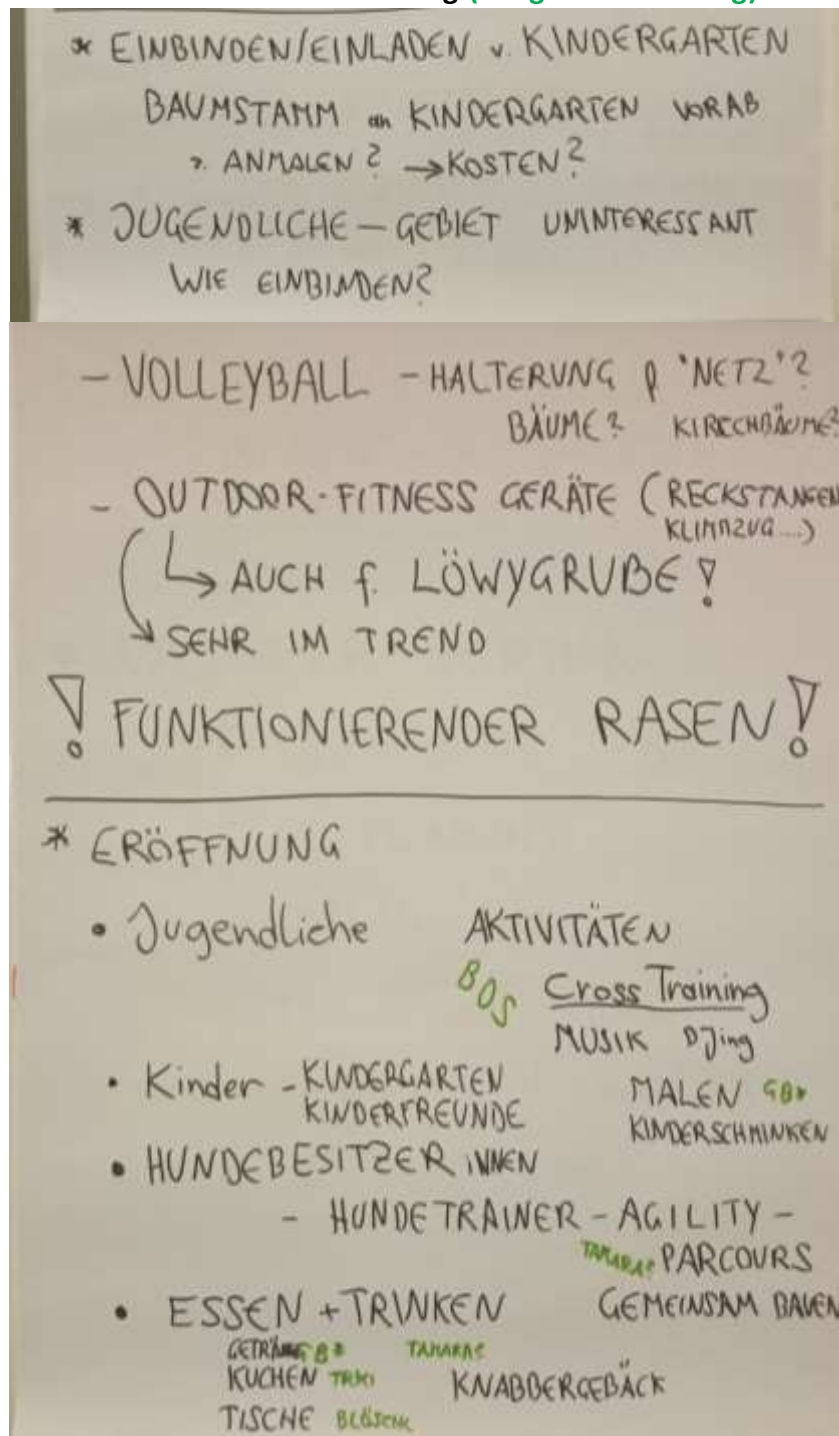 * EINBINDEN/EINLADEN v. KINDERGARTEN
BAUMSTAMM an KINDERGARTEN VORAB
z. ANMALEN? → KOSTEN?
* JUGENDLICHE – GEBIET UNINTERESSANT
WIE EINBINDEN?
– VOLLEYBALL – HALTERUNG f 'NETZ'?
BÄUME? KIRSCHBÄUME?
– OUTDOOR-FITNESS GERÄTE (RECKSTANGEN
KLIMMZUG....)
↳ AUCH f. LÖWYGRUBE!
→ SEHR IM TREND
! FUNKTIONIERENDER RASEN!
* ERÖFFNUNG
• Jugendliche AKTIVITÄTEN
BOS Cross Training
MUSIK DJing
• Kinder – KINDERGARTEN MALEN GB*
KINDERFREUNDE KINDERSCHMINKEN
• HUNDEBESITZER INNEN
– HUNDETRAINER – AGILITY –
TAMARA? PARCOURS
• ESSEN + TRINKEN GEMEINSAM BAUEN
GETRÄNKE GB* TAMARA?
KUCHEN KNABBERGEBÄCK
TISCHE